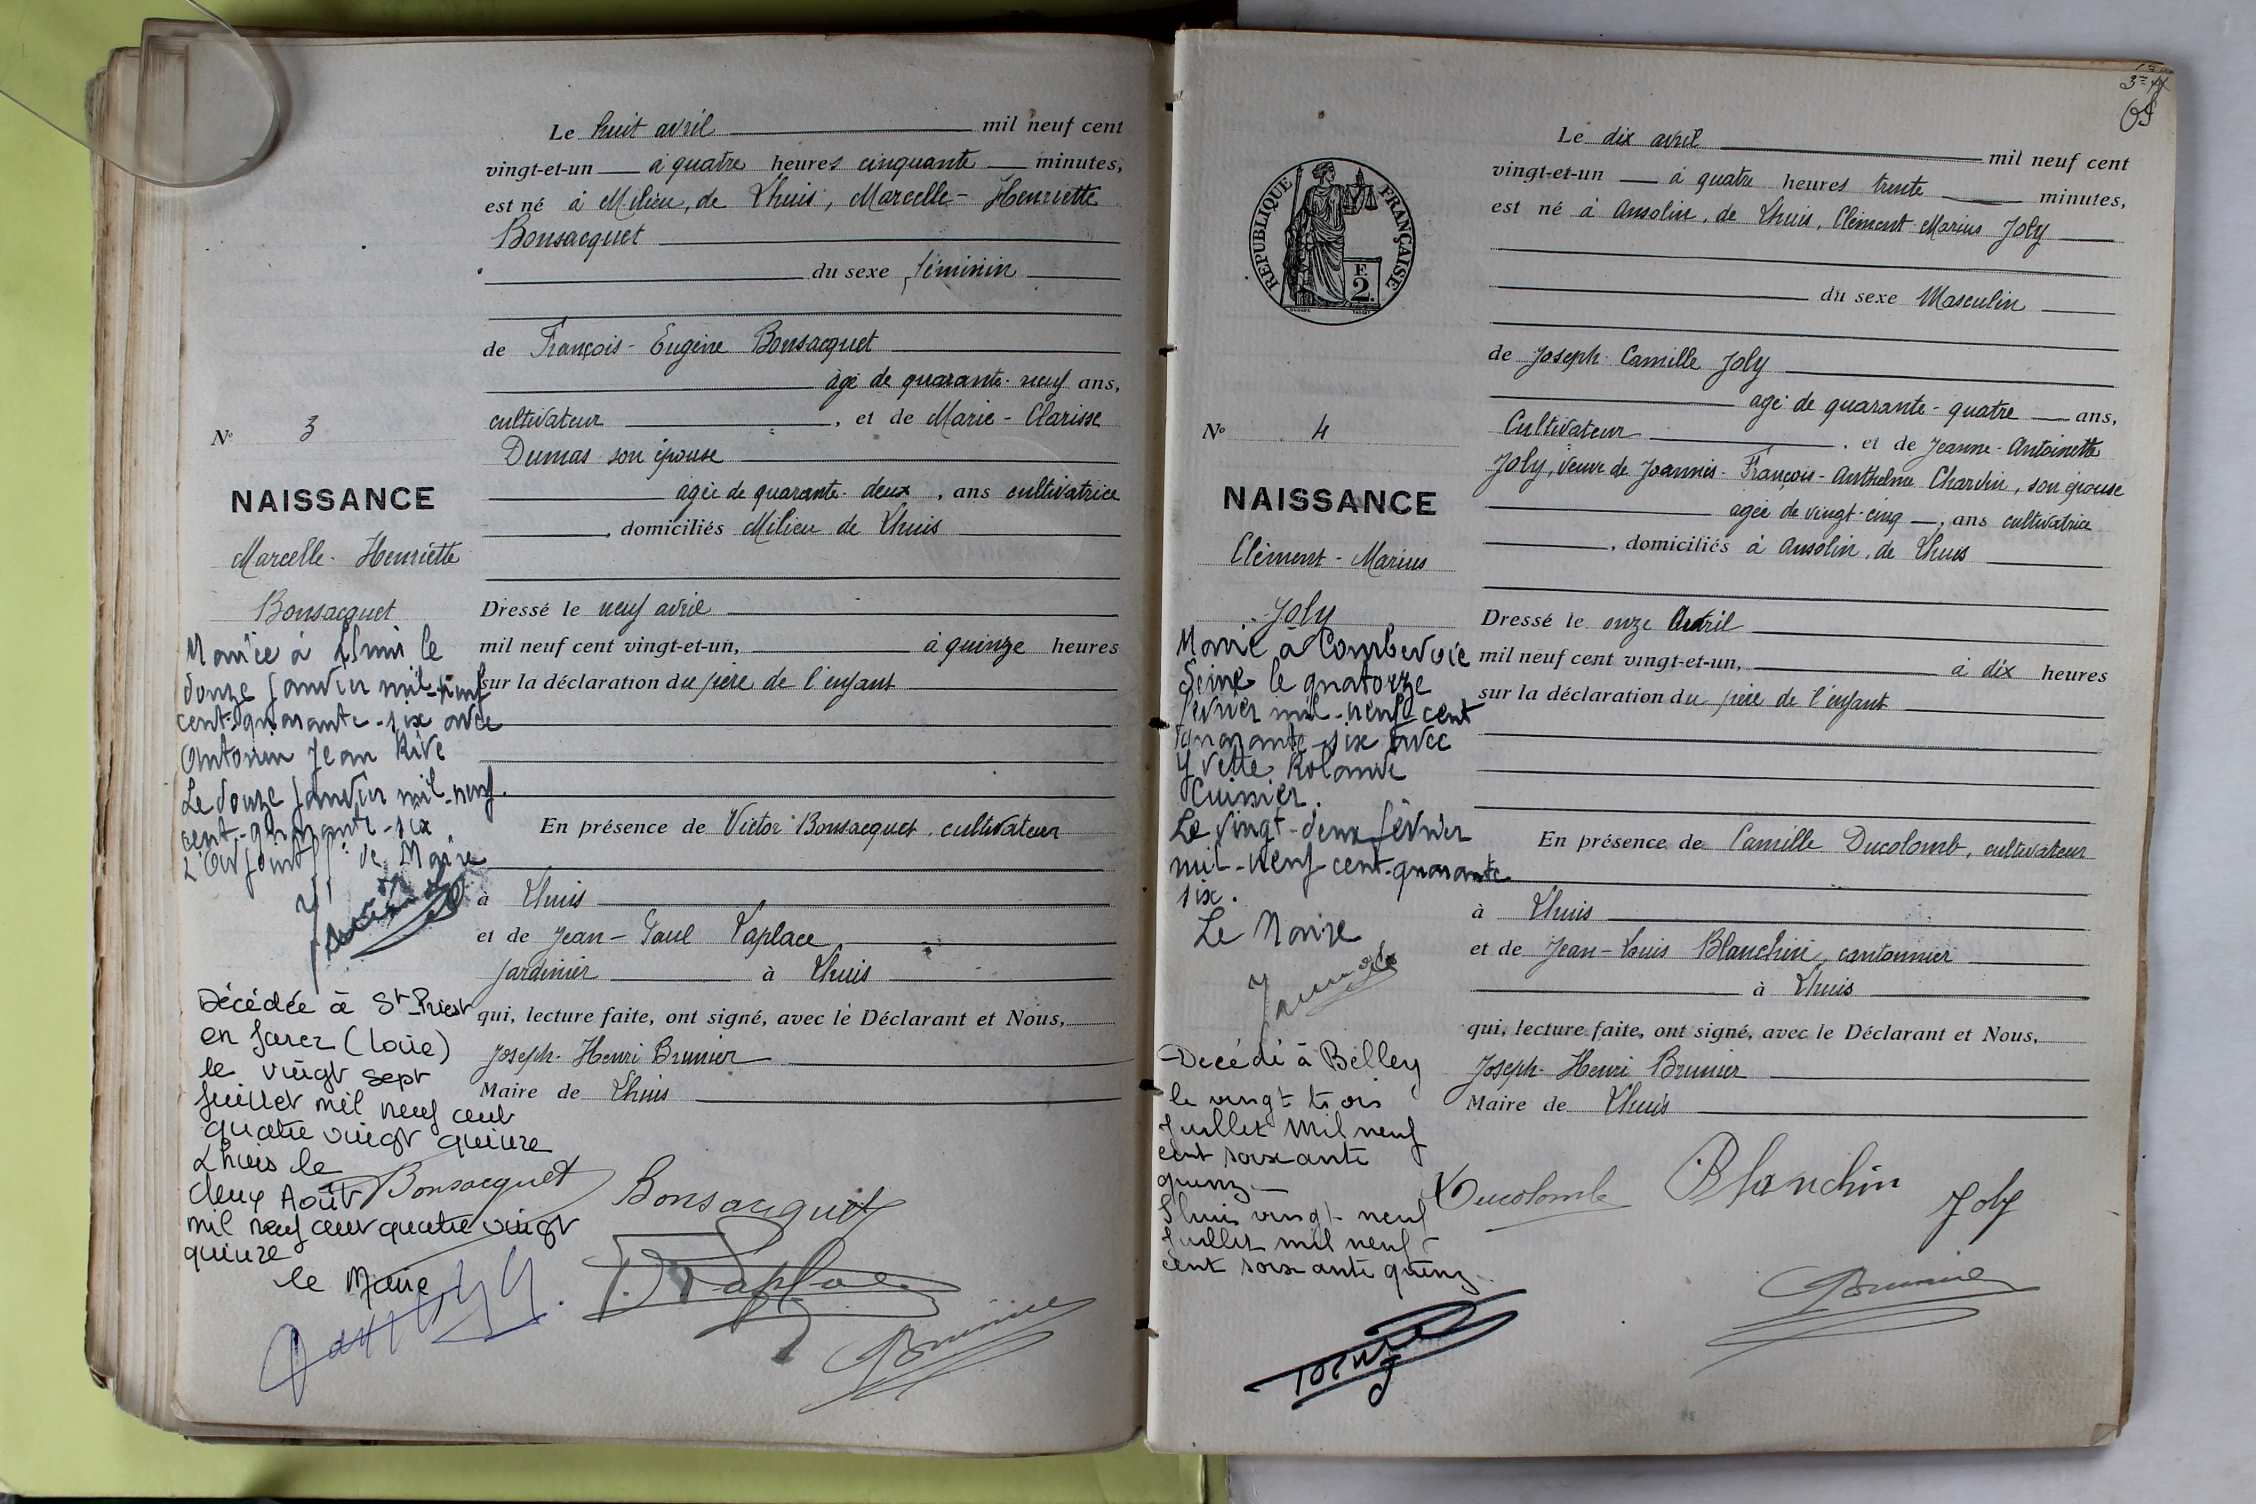 Le huit avril mil neuf cent
vingt-et-un à quatre heures cinquante minutes,
est né à Milieu, de Lhuis, Marcelle-Henriette
Bonsacquet
du sexe féminin
de François-Eugène Bonsacquet
âgé de quarante-neuf ans,
cultivateur, et de Marie-Clarisse
Dumas son épouse
agée de quarante-deux, ans cultivatrice
, domiciliés Milieu de Lhuis
Dressé le neuf avril
mil neuf cent vingt-et-un, à quinze heures
sur la déclaration du père de l'enfant
En présence de Victor Bonsacquet, cultivateur
à Lhuis
et de Jean-Paul Laplace
jardinier à Lhuis
qui, lecture faite, ont signé, avec le Déclarant et Nous,
Joseph-Henri Brunier
Maire de Lhuis
N° 3
NAISSANCE
Marcelle-Henriette
Bonsacquet
Mariée à Lhuis le
douze janvier mil-neuf
cent-quarante-six avec
Antonin Jean Rive
Le douze janvier mil-neuf
cent-quarante-six
L'Adjoint ff. de Maire
Décédée à St Priest
en Jarez (Loire)
le vingt sept
Juillet mil neuf cent
quatre vingt quinze
Lhuis le
deux Août
mil neuf cent quatre vingt
quinze
le Maire
Bonsacquet
Bonsacquet
P. Laplace
Brunier
3
Le dix avril mil neuf cent
vingt-et-un à quatre heures trente minutes,
est né à Ansolin, de Lhuis, Clément-Marius Joly
du sexe Masculin
de Joseph-Camille Joly
agé de quarante-quatre ans,
Cultivateur, et de Jeanne-Antoinette
Joly, veuve de Joannès-François-Anthelme Chardin, son épouse
agée de vingt-cinq, ans cultivatrice
, domiciliés à Ansolin, de Lhuis
Dressé le onze Avril
mil neuf cent vingt-et-un, à dix heures
sur la déclaration du père de l'enfant
En présence de Camille Ducolomb, cultivateur
à Lhuis
et de Jean-Louis Blanchin, cantonnier
à Lhuis
qui, lecture faite, ont signé, avec le Déclarant et Nous,
Joseph-Henri Brunier
Maire de Lhuis
RÉPUBLIQUE FRANÇAISE
F.
2.
N° 4
NAISSANCE
Clément-Marius
Joly
Marié à Courbevoie
Seine le quatorze
février mil-neuf cent
quarante-six avec
Yvette Rolande
Le vingt-deux février
mil-neuf cent-quarante
six.
Le Maire
Decédé à Belley
le vingt trois
Juillet mil neuf
cent soixante
quinz
Lhuis vingt neuf
Juillet mil neuf
cent soixante quinz
Ducolomb
Blanchin
Joly
Brunier